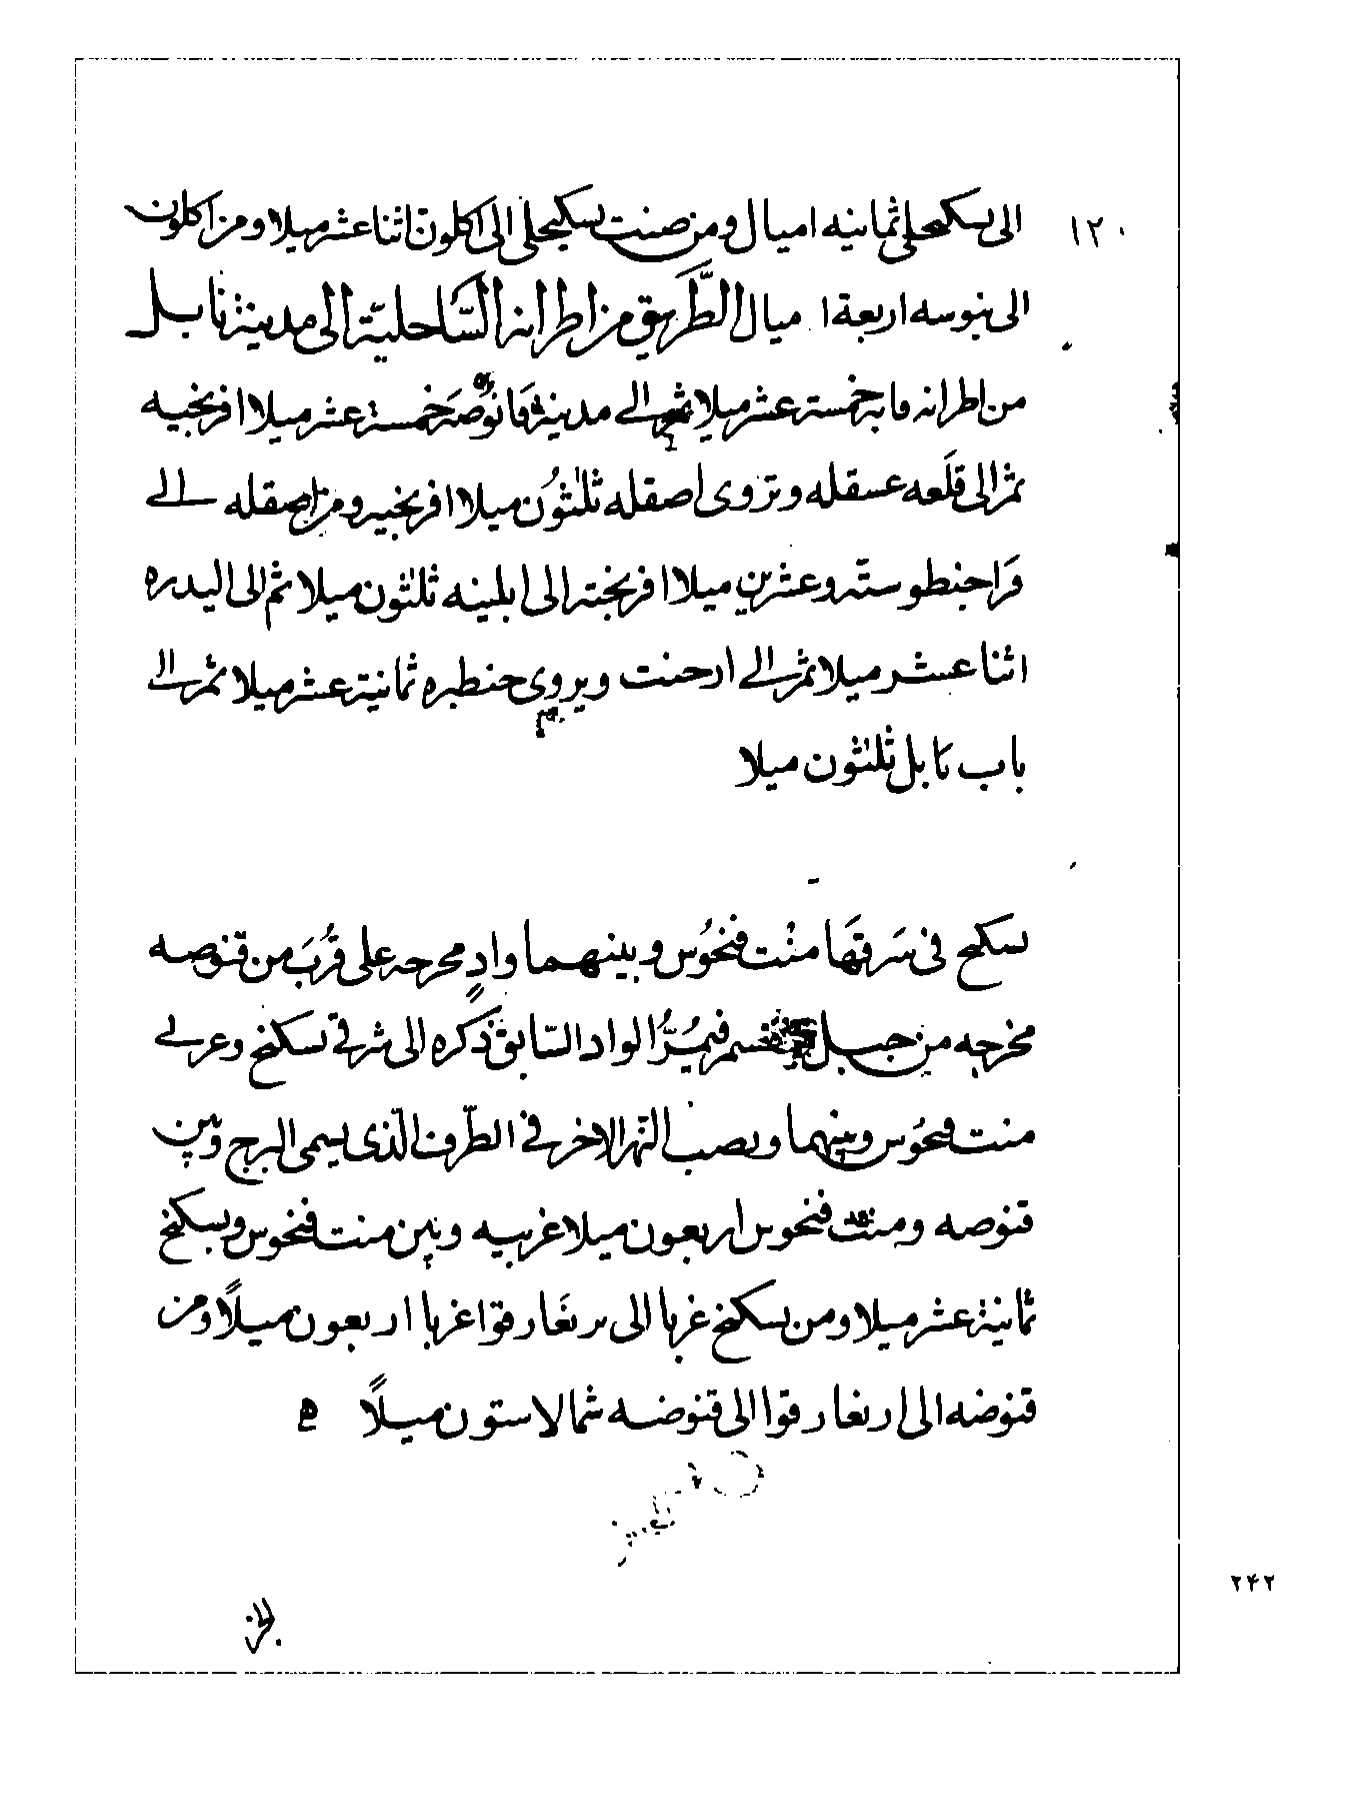 ١٢٠
الى بسكيحلى ثمانيه اميال ومن صنت بسكيحلى الى اكلون اثنا عشر ميلا ومن اكلون
الى بنوسه اربعة اميال الطَّريق من اطرانه السَّاحليَّة الى مدينة نابل
من اطرانه مابه خمسة عشر ميلا ثم الى مدينة قانوصَه خمسة عشر ميلا افرنجيه
ثم الى قلَعه عسقله وتروى اصقله ثلثوُن ميلا افرنجيه ومن اصقله الى
فَراجنطو ستَّه وعشرين ميلا افرنجيه الى ابلمينه ثلثون ميلا ثم الى اليدره
اثنا عشر ميلا ثم الى ارحنت ويروى حنطبره ثمانية عشر ميلا ثم الى
باب نابل ثلثون ميلا
بسكنج فى شَرقهَا منْت فنحوُس وبينهما وادٍ مخرجه على قُربَ من قنوصه
مخرجه من جبل فيمُرُّ الواد السَّابق ذكره الى شرقى بسكنج وغربى
منت فنحوُس وبينهما ويصب النهر الاخر فى الطَّرف الَّذى يسمى البرج وبين
قنوصه ومنت فنحوس اربعون ميلا غربيه وبين منت فنحوس وبسكنج
ثمانية عشر ميلا ومن بسكنج غربا الى برنغَارقوا غربا اربعون ميلًا ومن
قنوضه الى ارنغارقوا الى قنوضه شمالا ستون ميلًا ه
٢۴٢